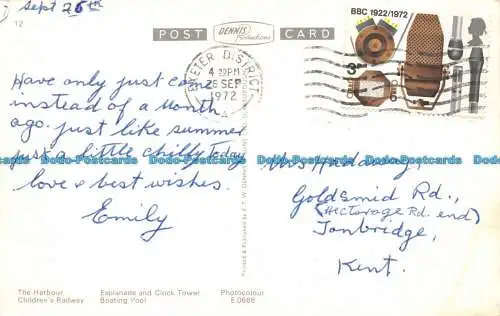 Sept 26th
12
POST
DENNIS
Productions
CARD
BBC 1922/1972
3
6
EXETER DISTRICT
4-PM
26 SEP
1972
A
Have only just come
instead of a Month
ago. just like summer
just a little chilly Today
love & best wishes.
Emily
Dodo-Postcards Dodo-Postcards Dodo-Postcards Dodo-Postcards
Printed & Published by E. T. W. DENNIS
Mrs
Goldsmid Rd.,
(Hectorage Rd. end)
Tonbridge,
Kent.
The Harbour
Children's Railway
Esplanade and Clock Tower
Boating Pool
Photocolour
E.0688